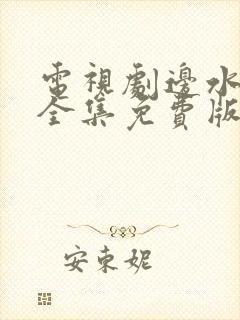 電視劇邊水
全集免費版
安東妮